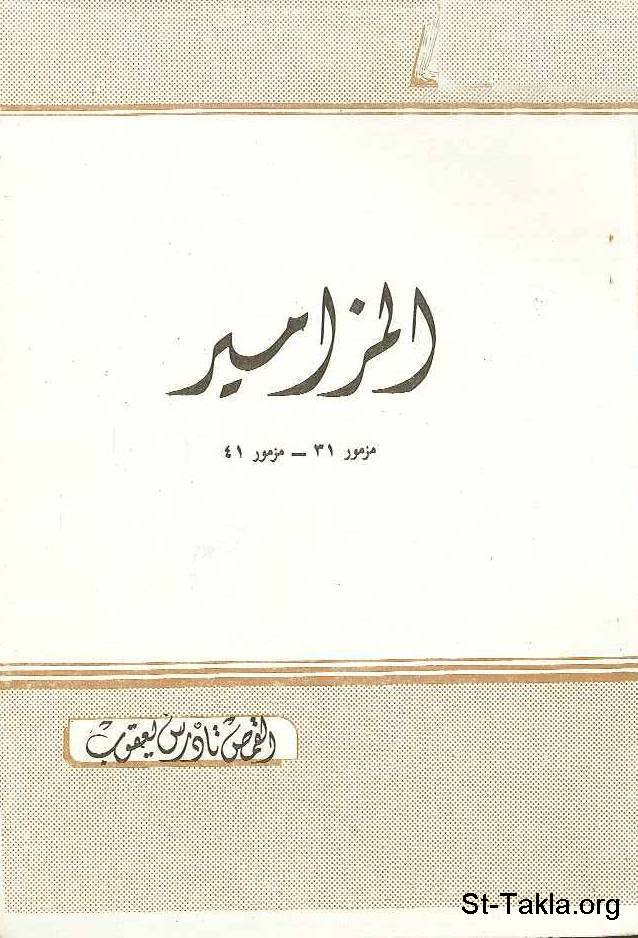 المزامير
مزمور ٣١ – مزمور ٤١
القمص تادرس يعقوب
St-Takla.org